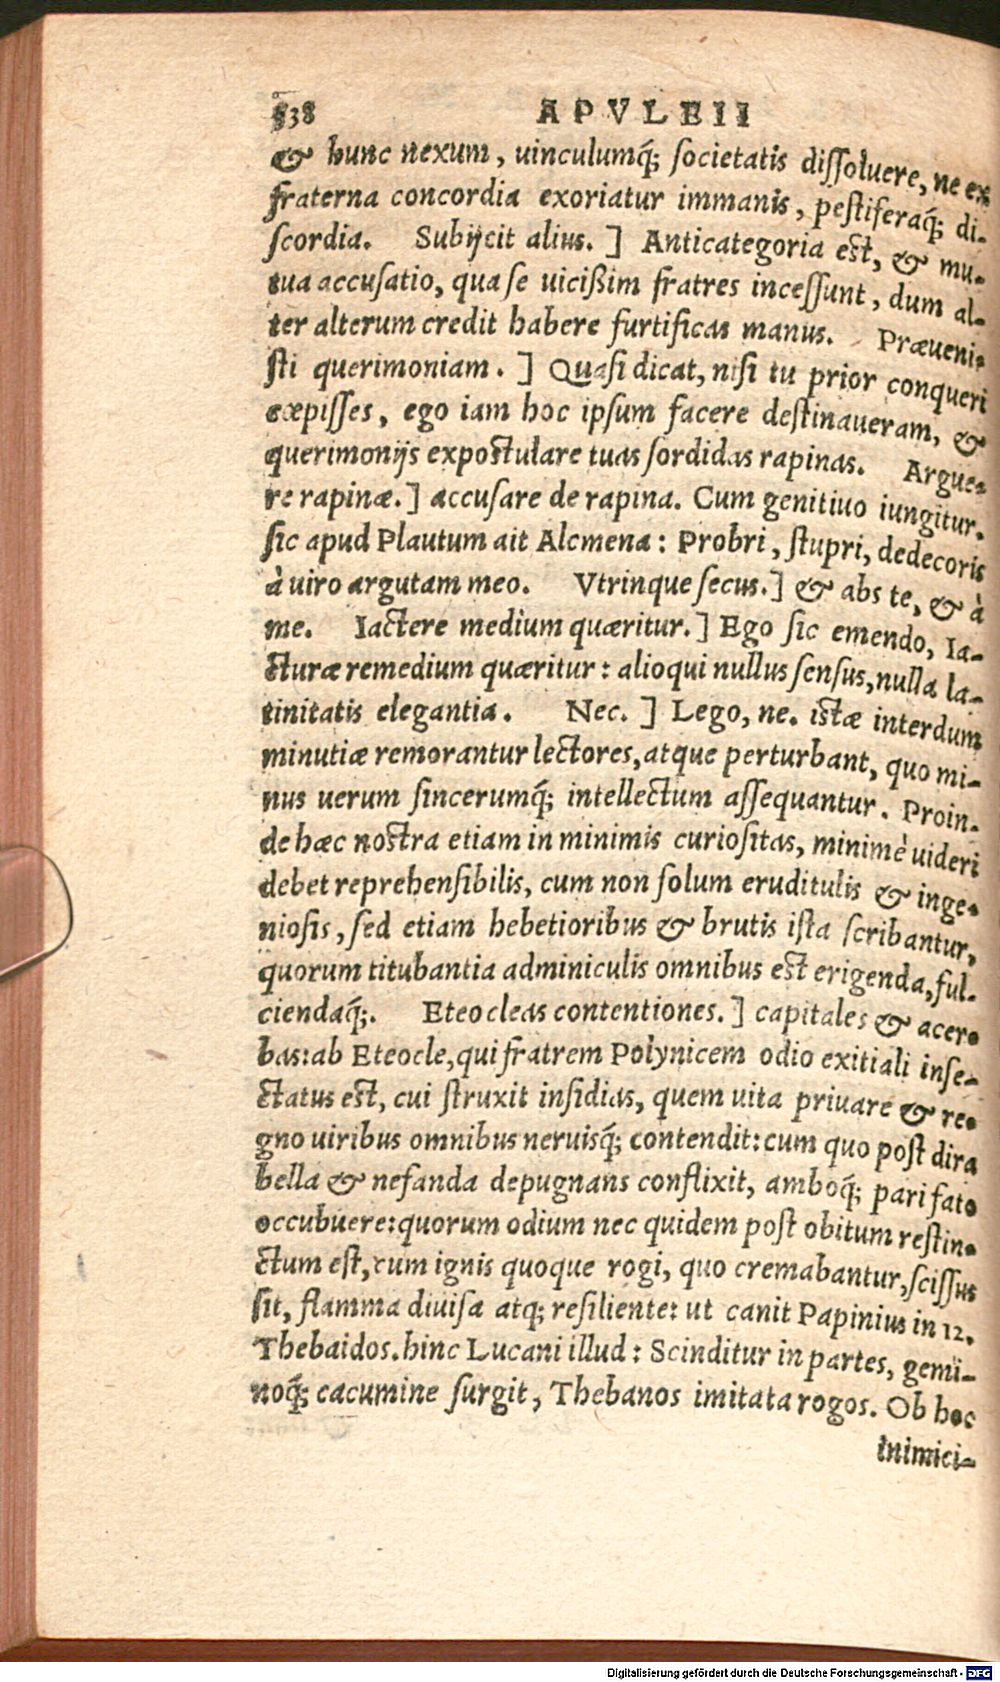 838 APVLEII
& hunc nexum, uinculumq́; societatis dissoluere, ne ex
fraterna concordia exoriatur immanis, pestiferaq́; di-
scordia. Subijcit alius. ] Anticategoria est, & mu-
tua accusatio, qua se uicißim fratres incessunt, dum al-
ter alterum credit habere furtificas manus. Præueni-
sti querimoniam. ] Quasi dicat, nisi tu prior conqueri
cœpisses, ego iam hoc ipsum facere destinaueram, &
querimonijs expostulare tuas sordidas rapinas. Argue-
re rapinæ. ] accusare de rapina. Cum genitiuo iungitur.
sic apud Plautum ait Alcmena: Probri, stupri, dedecoris
à uiro argutam meo. Vtrinque secus. ] & abs te, & à
me. Iactere medium quæritur. ] Ego sic emendo, Ia-
cturæ remedium quæritur: alioqui nullus sensus, nulla la-
tinitatis elegantia. Nec. ] Lego, ne. istæ interdum
minutiæ remorantur lectores, atque perturbant, quo mi-
nus uerum sincerumq́; intellectum assequantur. Proin-
de hæc nostra etiam in minimis curiositas, minimè uideri
debet reprehensibilis, cum non solum eruditulis & inge-
niosis, sed etiam hebetioribus & brutis ista scribantur,
quorum titubantia adminiculis omnibus est erigenda, ful-
ciendaq́;. Eteocleas contentiones. ] capitales & acer-
bas: ab Eteocle, qui fratrem Polynicem odio exitiali inse-
ctatus est, cui struxit insidias, quem uita priuare & re-
gno uiribus omnibus neruisq́; contendit: cum quo post dira
bella & nefanda depugnans conflixit, amboq́; pari fato
occubuere: quorum odium nec quidem post obitum restin-
ctum est, cum ignis quoque rogi, quo cremabantur, scissus
sit, flamma diuisa atq; resiliente: ut canit Papinius in 12.
Thebaidos. hinc Lucani illud: Scinditur in partes, gemi-
noq́; cacumine surgit, Thebanos imitata rogos. Ob hoc
inimici-
Digitalisierung gefördert durch die Deutsche Forschungsgemeinschaft - DFG